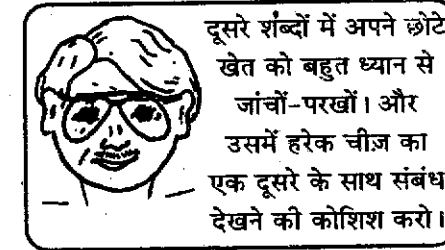 दूसरे शंब्दों में अपने छोटे
खेत को बहुत ध्यान से
जांचों-परखों। और
उसमें हरेक चीज़ का
एक दूसरे के साथ संबंध
देखने की कोशिश करो।